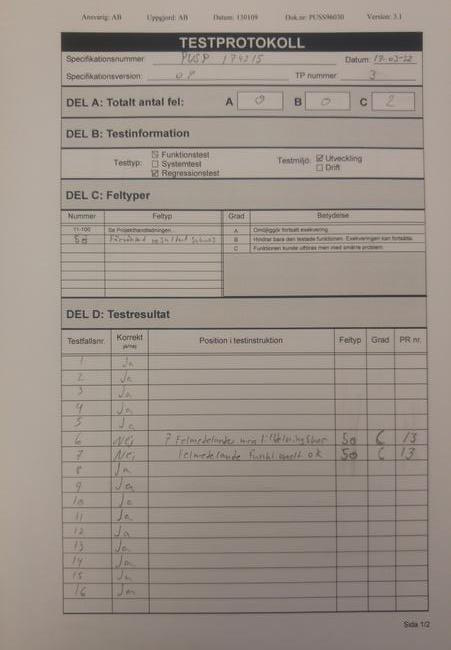 Ansvarig: AB Uppgjord: AB Datum: 130109 Dok.nr: PUSS96030 Version: 3.1
TESTPROTOKOLL
Specifikationsnummer PUSP 174215 Datum: 17-03-22
Specifikationsversion: 0.9 TP nummer 3
DEL A: Totalt antal fel: A 0 B 0 C 2
DEL B: Testinformation
Testtyp: Funktionstest
Systemtest
Regressionstest
Testmiljö: Utveckling
Drift
DEL C: Feltyper
Nummer Feltyp Grad Betydelse
11-100 Se Projekthandledningen... A Omöjliggör fortsatt exekvering
50 Förväntad resultat B Hindrar bara den testade funktionen. Exekveringen kan fortsätta.
C Funktionen kunde utföras men med smärre problem.
DEL D: Testresultat
Testfallsnr. Korrekt ja/nej Position i testinstruktion Feltyp Grad PR nr.
1 Ja
2 Ja
3 Ja
4 Ja
5 Ja
6 Nej 7 Felmedelanden men 50 C 13
7 Nej Felmedelande funktionellt ok 50 C 13
8 Ja
9 Ja
10 Ja
11 Ja
12 Ja
13 Ja
14 Ja
15 Ja
16 Ja
Sida 1/2